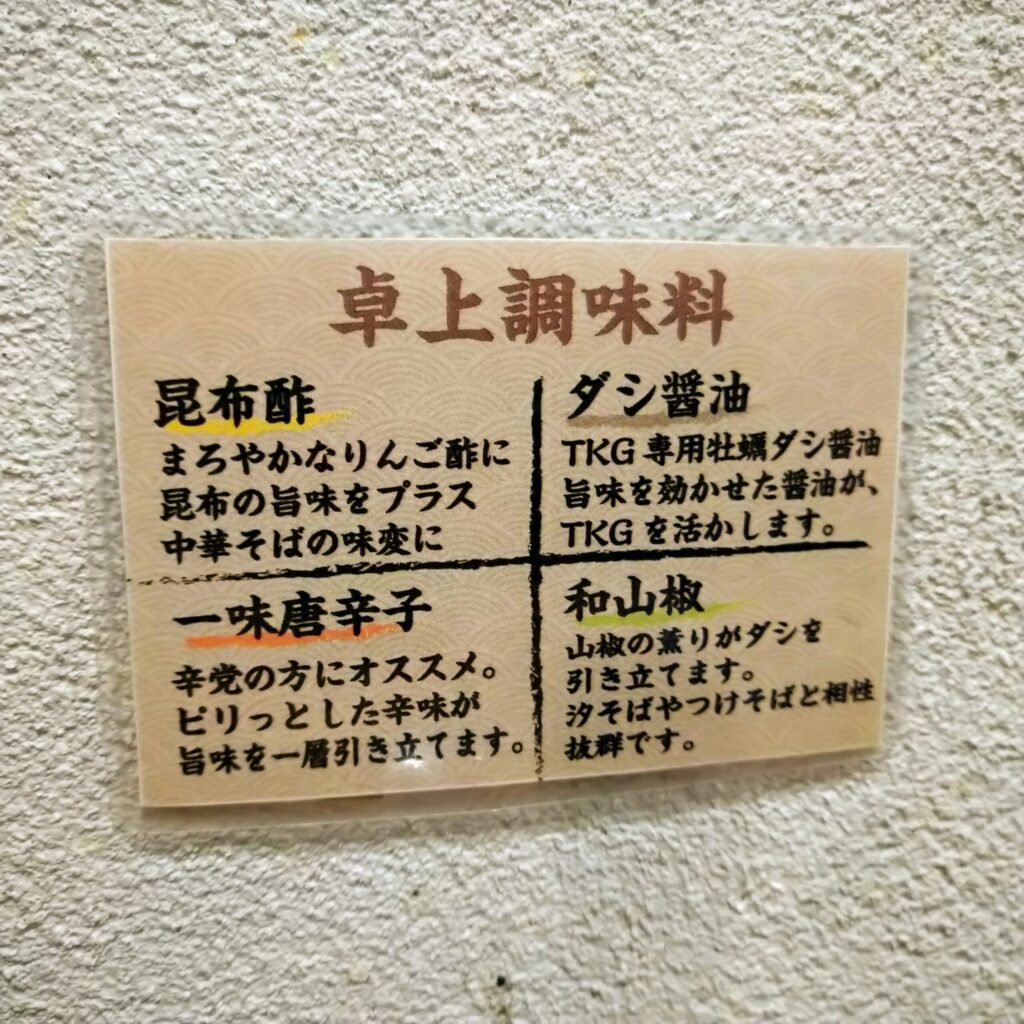 卓上調味料
昆布酢
まろやかなりんご酢に
昆布の旨味をプラス
中華そばの味変に
ダシ醤油
TKG専用牡蠣ダシ醤油
旨味を効かせた醤油が、
TKGを活かします。
一味唐辛子
辛党の方にオススメ。
ピリっとした辛味が
旨味を一層引き立てます。
和山椒
山椒の薫りがダシを
引き立てます。
汐そばやつけそばと相性
抜群です。